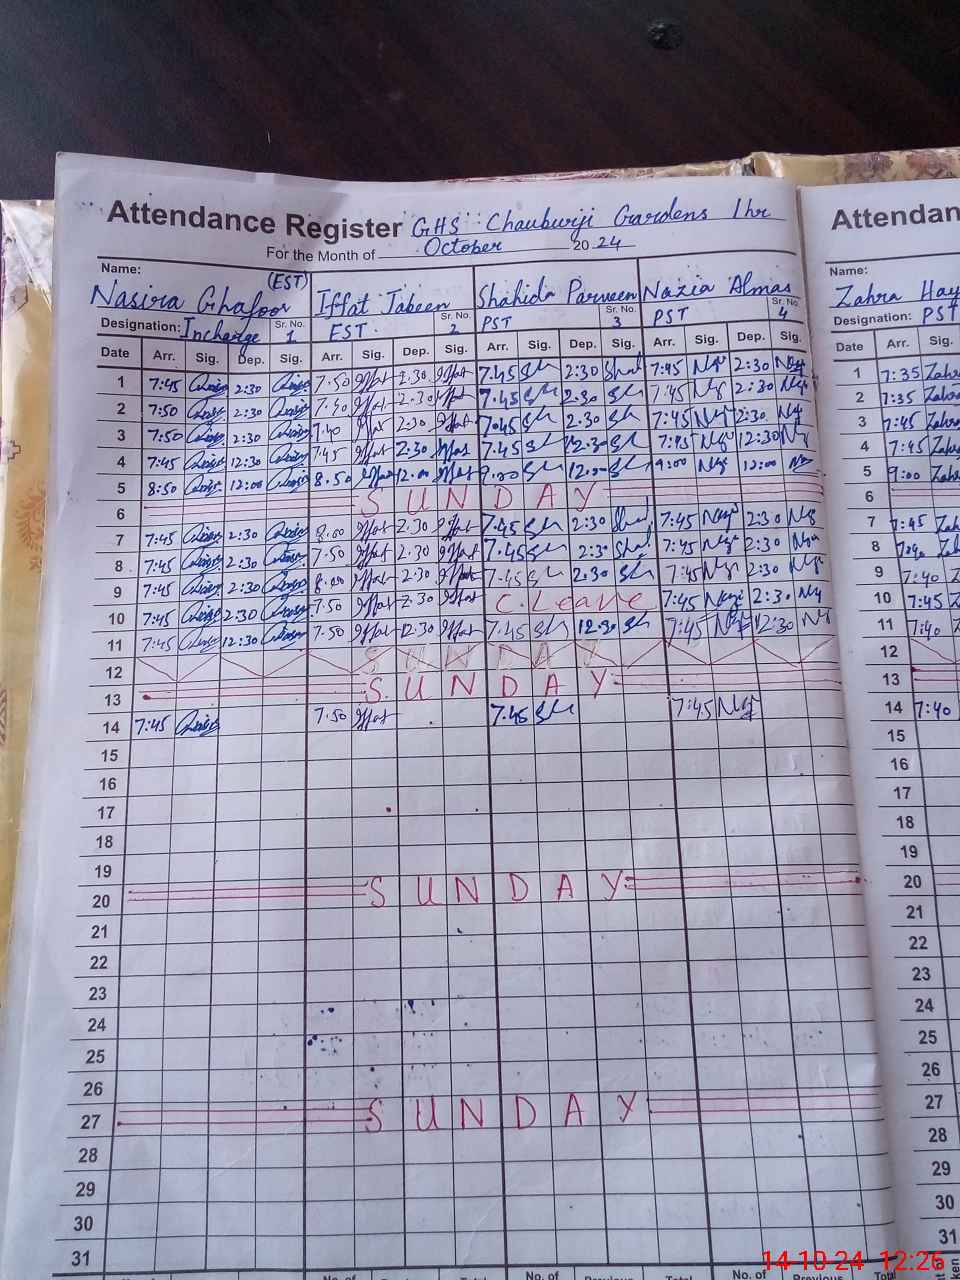 Attendance Register GHS Chauburji Gardens lhr
For the Month of October 2024
Name: (EST)
Nasira Ghafoor Iffat Jabeen Shahida Parveen Nazia Almas
Designation: Incharge Sr. No. 1 EST. Sr. No. 2 PST Sr. No. 3 PST Sr. No. 4
Date Arr. Sig. Dep. Sig. Arr. Sig. Dep. Sig. Arr. Sig. Dep. Sig. Arr. Sig. Dep. Sig.
1 7:45 2:30 7.50 Iffat 2.30 Iffat 7.45 Sh 2:30 Shah 7:45 2:30
2 7:50 2:30 Iffat 2.30 Iffat 7.45 Sh 2.30 Sh 7:45 2:30
3 7:50 2:30 7.40 Iffat 2.30 Iffat 7.45 Sh 2.30 Sh 7:45 2:30
4 7:45 12:30 7.45 Iffat 2.30 Iffat 7.45 Sh 12.30 Sh 7:45 12:30
5 8:50 12:00 8.50 Iffat 12.00 Iffat 9.00 Sh 12.00 Sh 9:00 12:00
6 SUNDAY
7 7:45 2:30 8.00 Iffat 2.30 Iffat 7.45 Sh 2:30 Shah 7:45 2:30
8 7:45 2:30 7.50 Iffat 2.30 Iffat 7.45 Sh 2:30 Shah 7:45 2:30
9 7:45 2:30 8.00 Iffat 2.30 Iffat 7.45 Sh 2.30 Sh 7:45 2:30
10 7:45 2:30 7.50 Iffat 2.30 Iffat C. Leave 7:45 2:30
11 7:45 12:30 7.50 Iffat 12.30 Iffat 7.45 Sh 12.30 Sh 7:45 12:30
12 SUNDAY
13 SUNDAY
14 7:45 7.50 Iffat 7.45 Sh 7:45
15
16
17
18
19
20 SUNDAY
21
22
23
24
25
26
27 SUNDAY
28
29
30
31
No. of Previous Total No. of Previous Total No. of Previous Total
Attendan
Name:
Zahra Hay
Designation: PST
Date Arr. Sig.
1 7:35 Zahra
2 7:35 Zahra
3 7:45 Zahra
4 7:45 Zahra
5 9:00 Zahra
6
7 7:45 Zah
8 7:40 Zah
9 7:40 Z
10 7:45 Z
11 7:40
12
13
14 7:40
15
16
17
18
19
20
21
22
23
24
25
26
27
28
29
30
31
14 10 24 12:26